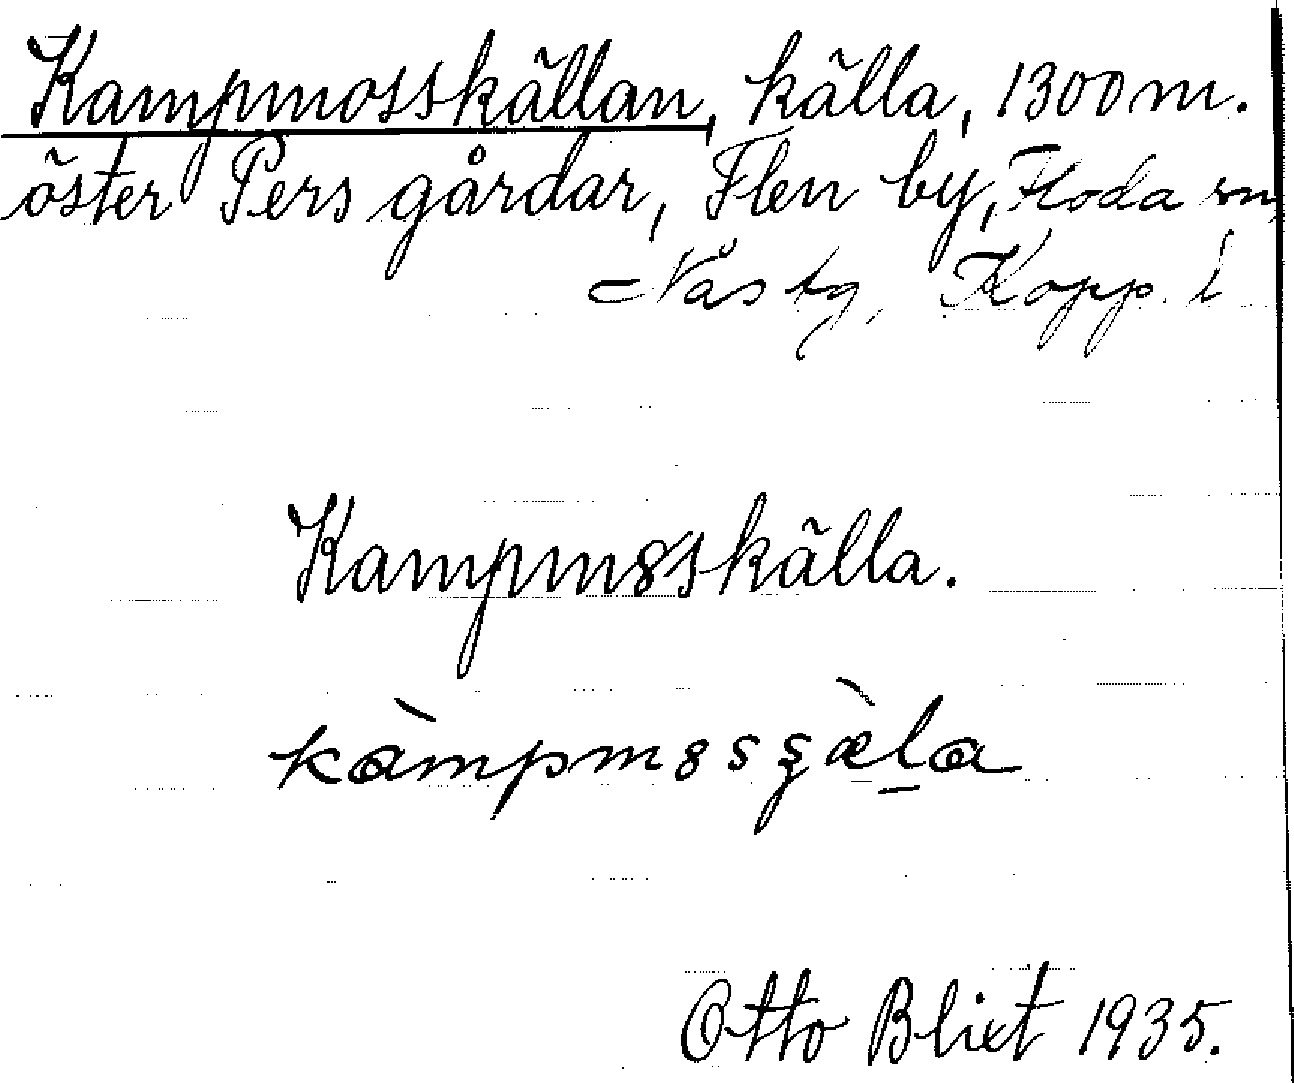 Kampmosskällan, källa, 1300 m.
öster Pers gårdar, Flen by, Floda sn,
Nås tg, Kopp. l
Kampm8sskälla.
kàmpm8sʂæ̀la
Otto Blixt 1935.